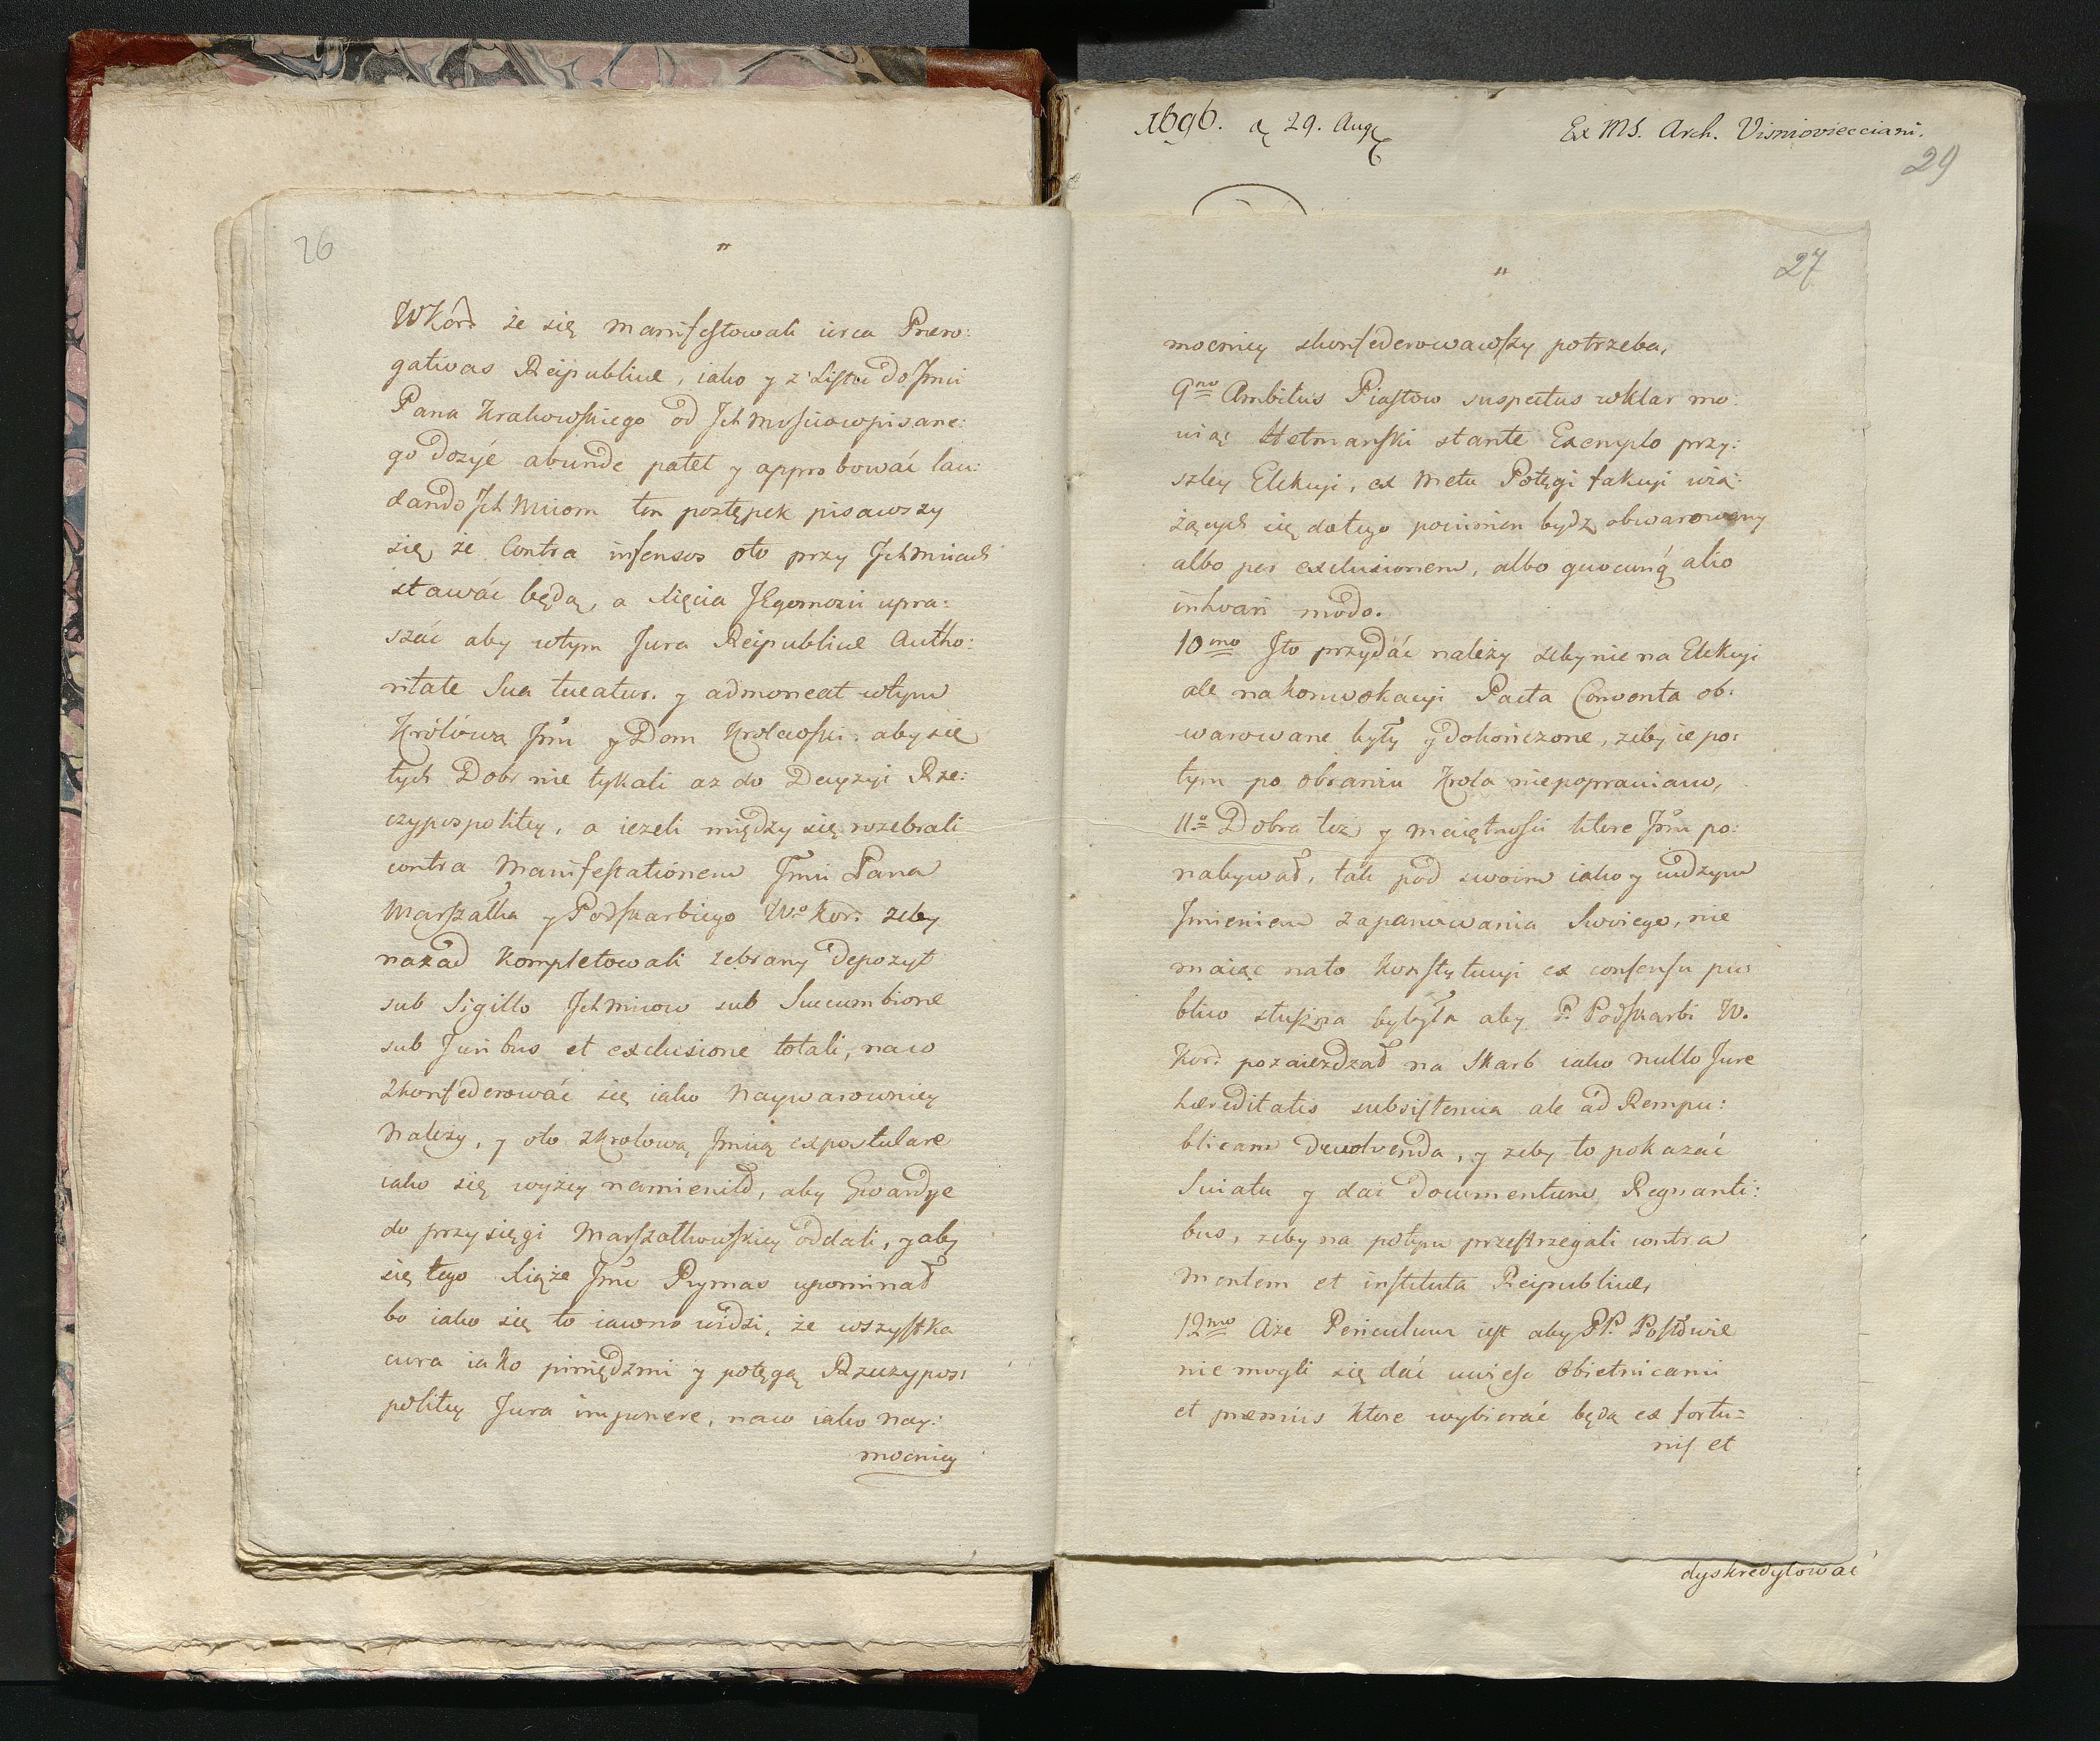 26
"
WKór: że się manifestowali circa Præro:
gativas Reipublicæ, iako y z Listu do Jmci
Pana Krakowskiego od Ich Mosciow pisane:
go dozyć abunde patet y approbować lau:
dando Ich Mciom ten postępek pisawszy
się że Contra infensos oto przy Ich Mciach
stawać będą, a Xięcia JEgomości upra:
szać aby wtym Jura Reipublicæ Autho:
ritate Sua tueatur. y admoneat wtym
Królówą Jmć y Dom Krolewski. aby się
tych Dobr nie tykali az do Decyzyi Rze:
czypospolitey, a iezeli między się rozebrali
contra Manifestationem Jmci Pana
Marszałka y Podskarbiego Wo Kor: zeby
nazad Kompletowali zebrany Depozyt
sub Sigillo Ich Mciow sub Succumbione
sub Juribus et exclusione totali, naco
zkonfederowáć się iako Naywarowniey
Należy, y oto zkrolową Jmcią expostulare
iako się wyżey namieniło, aby Gwardye
do przysięgi Marszałkowskiey oddali, y aby
się tego Xiąże Jmć Prymas upominał
bo iako się to iawno widzi, że wszystka
cura iako pieniędzmi y potęgą Rzeczypos:
politey Jura imponere, naco iako nay:
mocniey
1696. d 29. Aug
Ex MS. Arch. Visnioviecciani.
29
27
"
mocniey skonfederowawszy potrzeba,
9no Ambitus Piastow suspectus wklar mo:
wiąc Hetmanski stante Exemplo przy:
szley Elekcyi, ex Metu Potęgi fakcyi wią:
żących się dotego powinien bydz obwarowany
albo per exclusionem, albo quocunq alio
inhvari modo.
10mo Jto przydáć należy zeby nie na Elekcyi
ale na konwokacyi Pacta Conventa ob:
warowane były y dokończone, zeby ie po:
tym po obraniu Krola niepoprawiano,
11o Dobra tez y maiętnosci ktore Jmć po:
nabywał, ták pod swoim iako y cudzym
Jmieniem zapanowania Swoiego, nie
maiąc nato Konstytucyi ex consensu pu:
blico słuszna byłyła aby P. Podskarbi W.
Kor: pozaiezdzał na Skarb iako nullo Jure
hæreditatis subsistencia ale ad Rempu:
blicam Devolvenda, y zeby to pokazać
Swiatu y dać Documentum Regnanti:
bus, zeby na potym przestrzegali contra
mentem et instituta Reipublicæ,
12mo Aze Periculum iest aby PP. Posłowie
nie mogli się dáć uwieść Obietnicami
et præmiis ktore wybieráć będą ex fortu=
nis et
dyskredytować